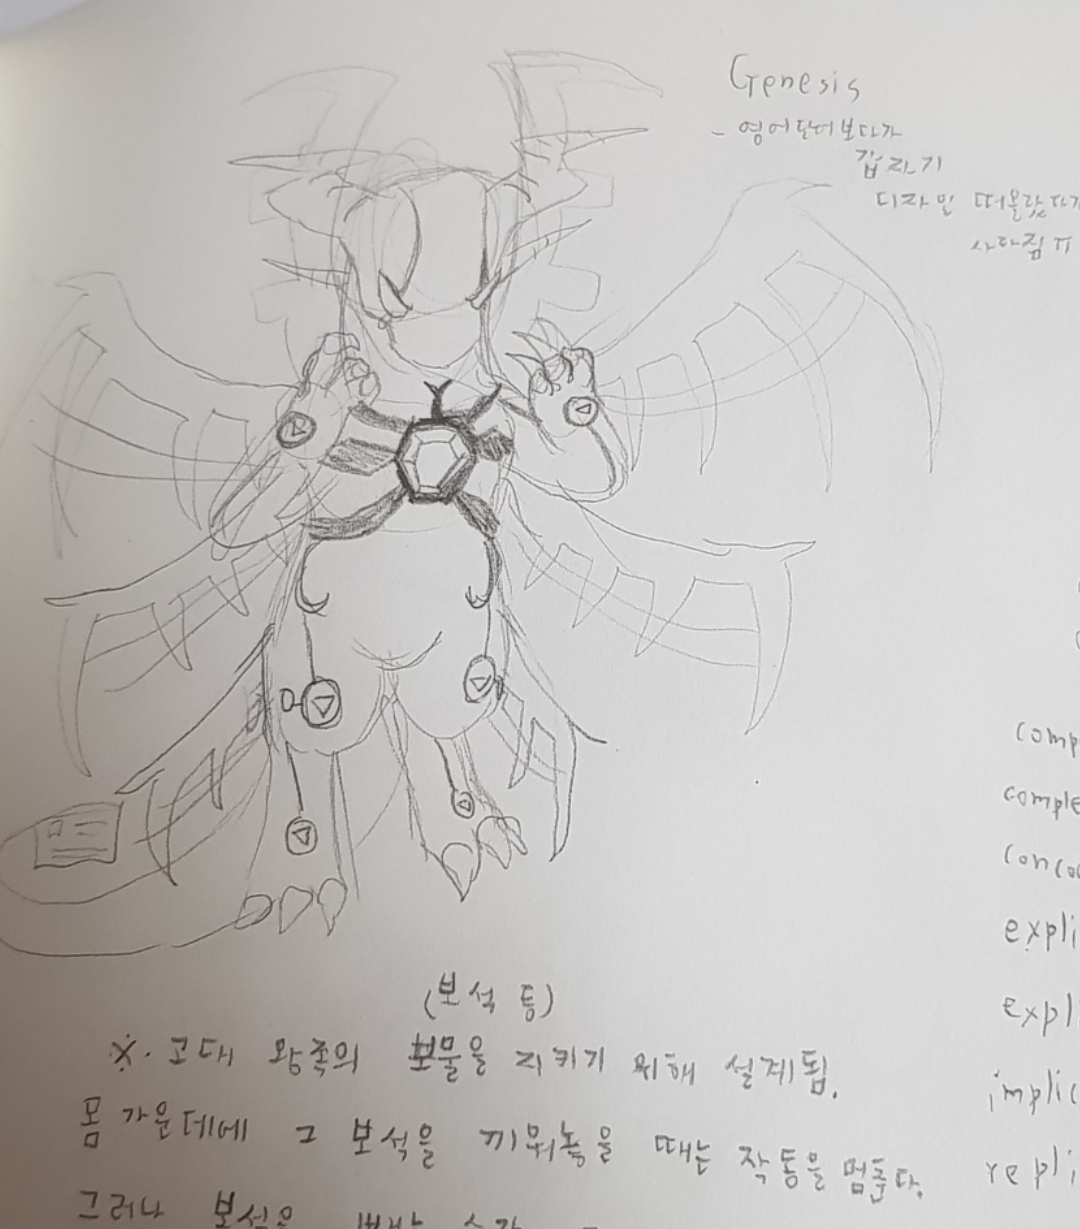 Genesis
- 영어단어보다가
갑자기
디자인 떠올랐다가
사라짐 ㅠ
comp
comple
conco
expli
expli
implic
repli
(보석 등)
※. 고대 왕족의 보물을 지키기 위해 설계됨.
몸 가운데에 그 보석을 끼워놓을 때는 작동을 멈춘다.
그러나 보석을